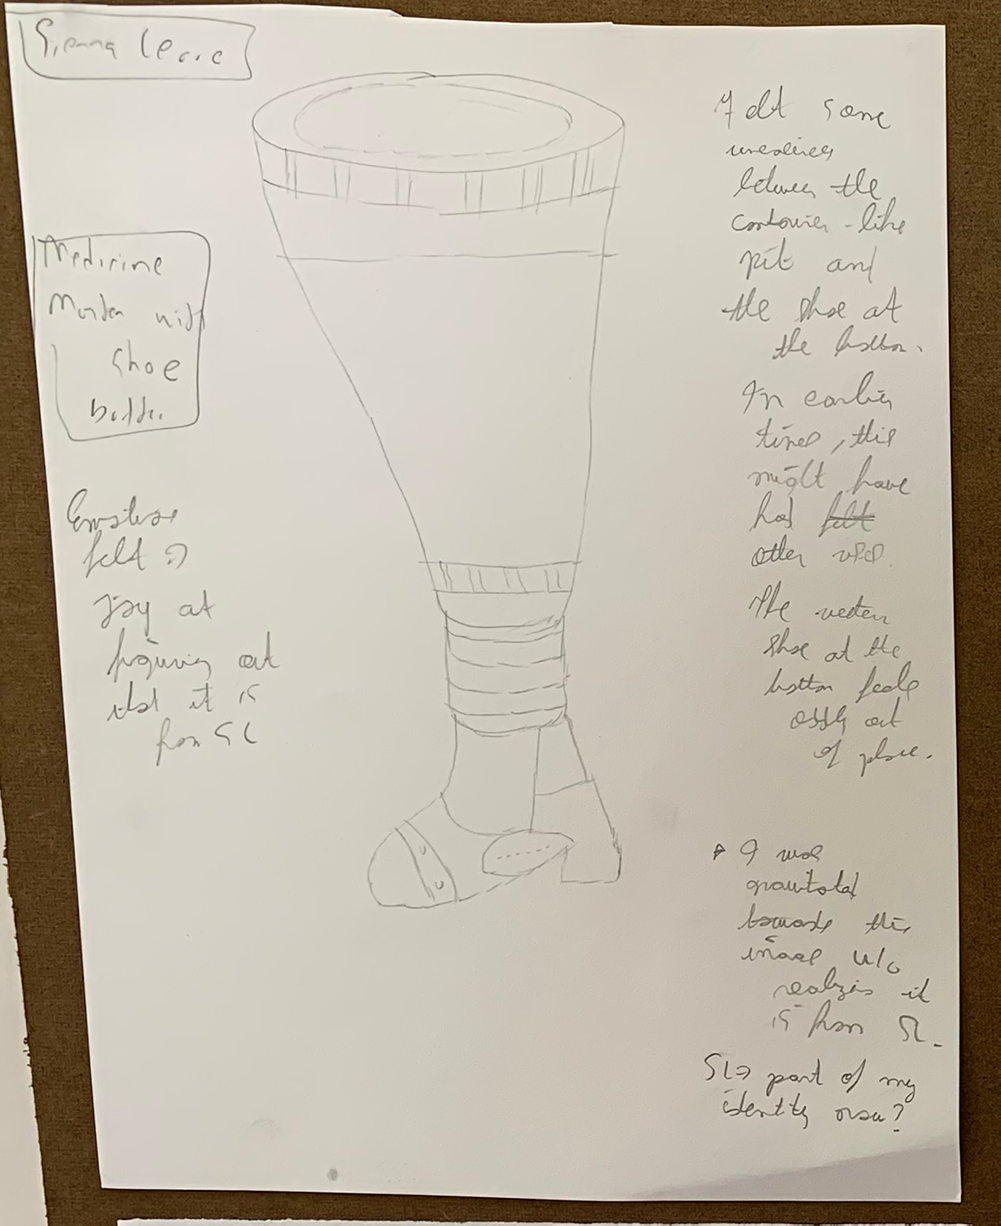 Sierra Leone
Medicine
Mortar with
Shoe
bottom
Emotions
felt :)
Joy at
figuring out
that it is
from SL
I felt some
uneasiness
between the
container-like
pit and
the shoe at
the bottom.
In earlier
times, this
might have
had felt
other uses.
The western
shoe at the
bottom feels
oddly out
of place.
I was
gravitated
towards this
image w/o
realizing it
is from SL.
SL => part of my
identity now?